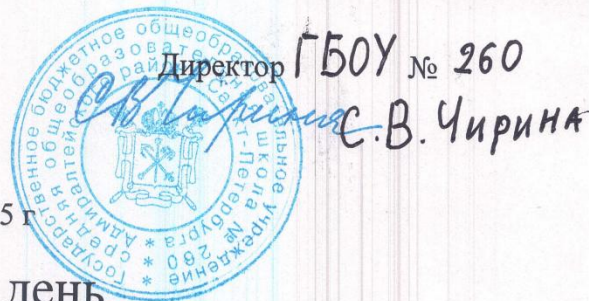 Директор ГБОУ № 260
С.В. Чирина
Государственное бюджетное общеобразовательное учреждение
средняя общеобразовательная школа № 260
Адмиралтейского района Санкт-Петербурга
5 г
день